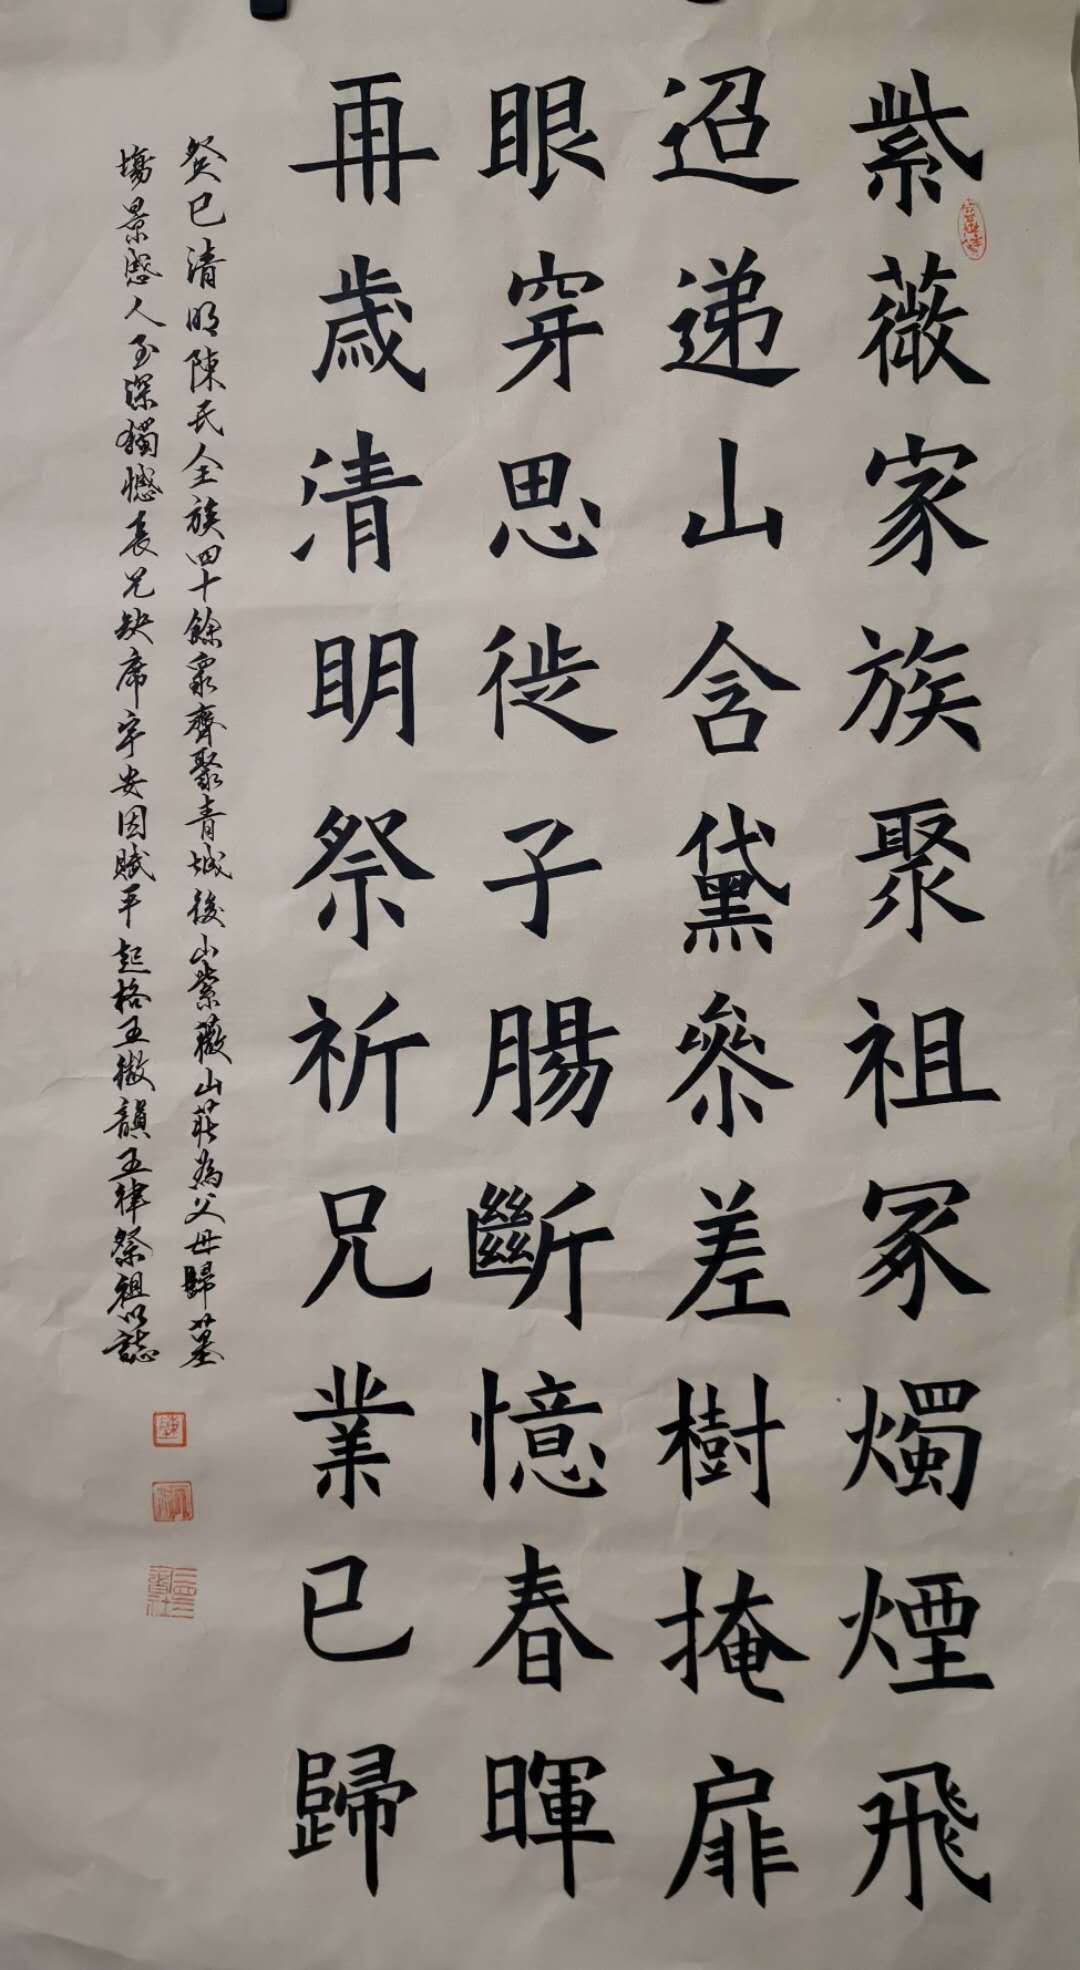 紫薇家族聚祖冢燭煙飛
迢递山含黛參差樹掩扉
眼穿思徙子腸斷憶春暉
再歲清明祭祈兄業已歸
癸巳清明陳氏全族四十餘眾齊聚青城後山紫薇山莊為父母歸墓
場景感人至深獨憾長兄缺席宇安因賦平起格五微韻五律祭祖以誌